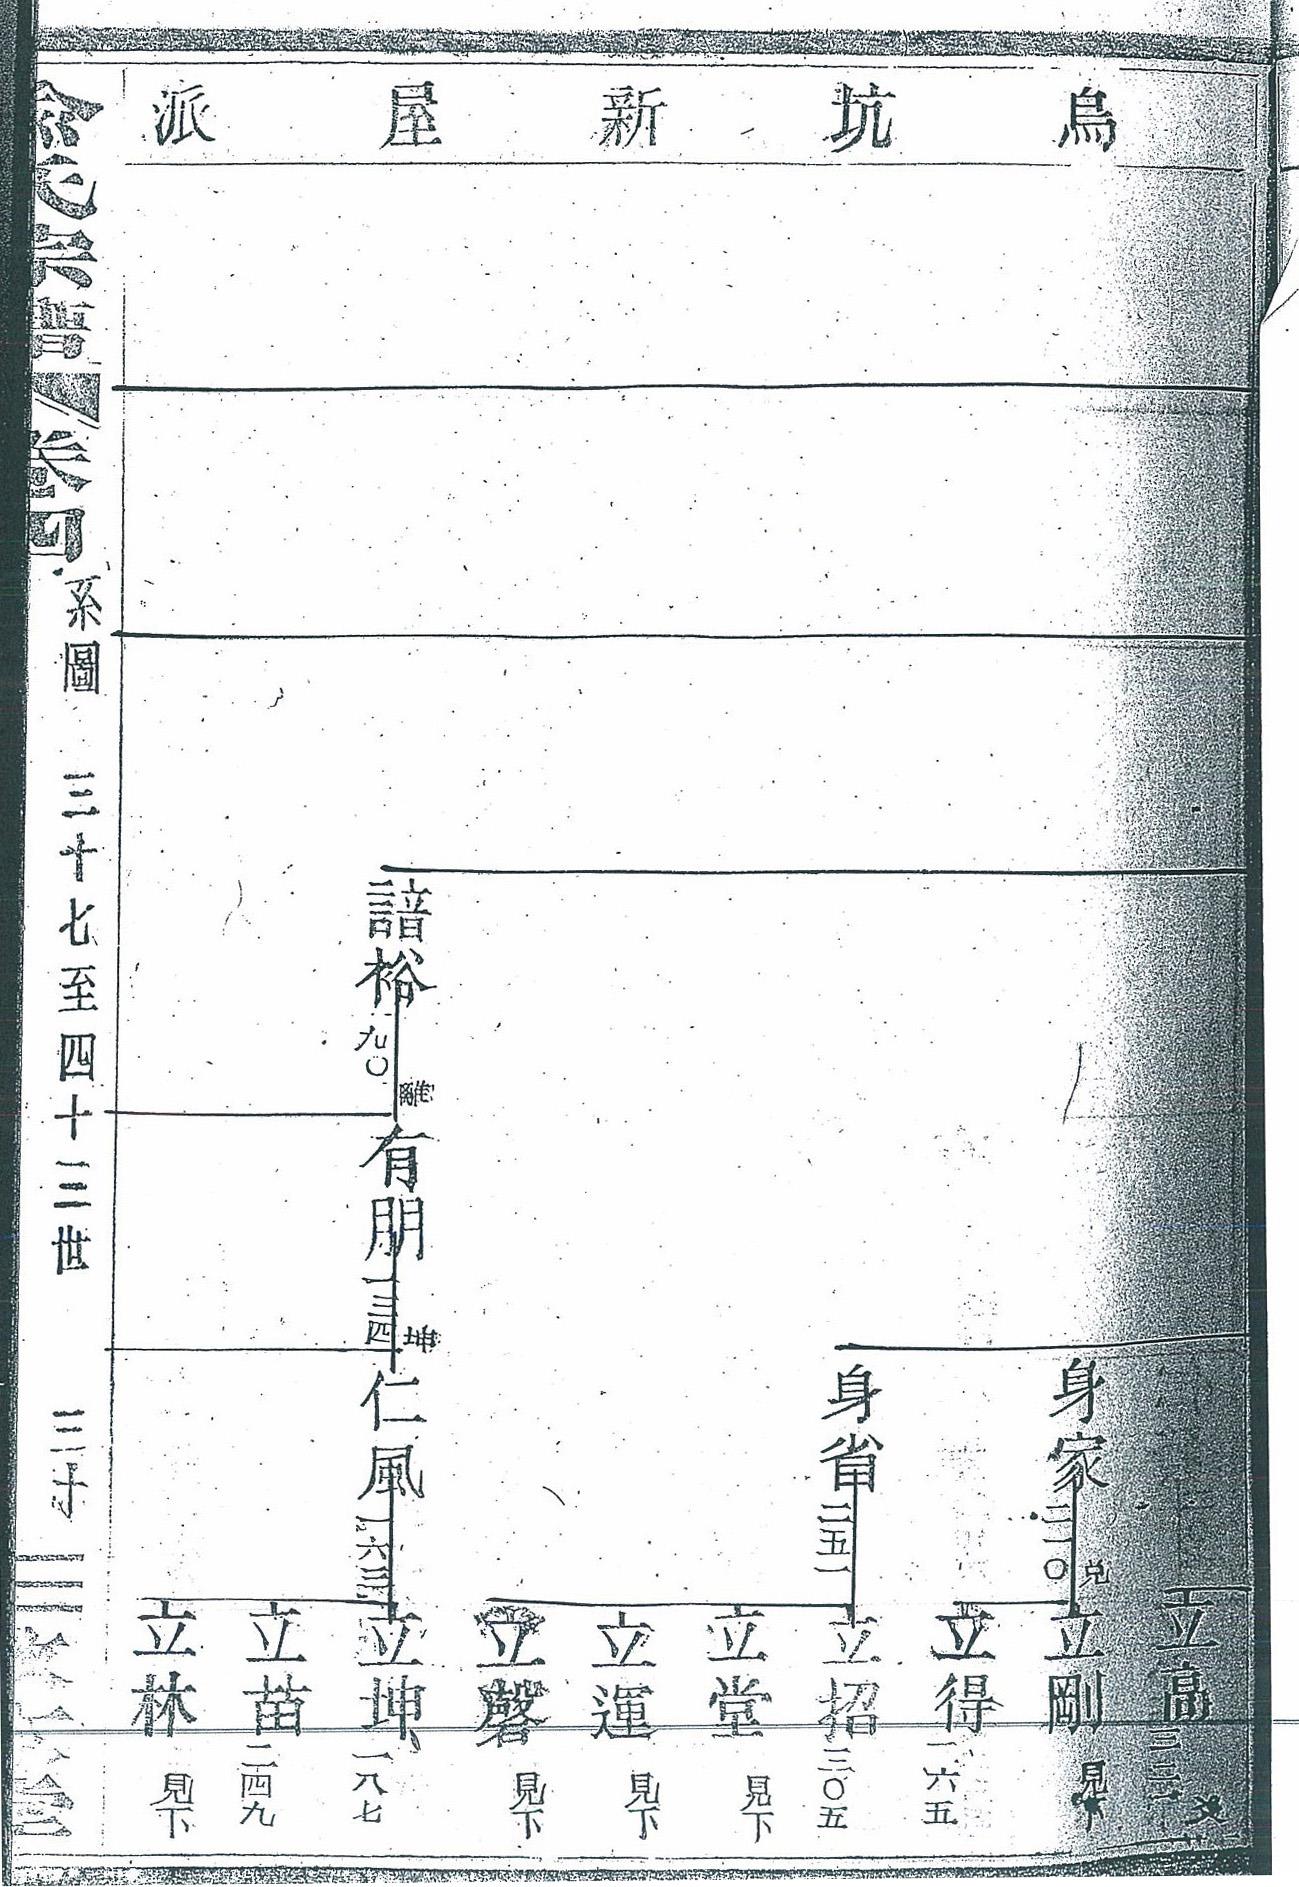 烏坑新屋派
立高
身家
二一〇
兑
立剛
見下
立得
一六五
身省
二五一
立招
三〇五
立堂
見下
立運
見下
立磬
見下
諳裕
九〇
離
有朋
一三四
坤
仁風
一六三
立坤
一八七
立苗
二四九
立林
見下
俞氏宗譜
卷四
系圖
三十七至四十三世
三十